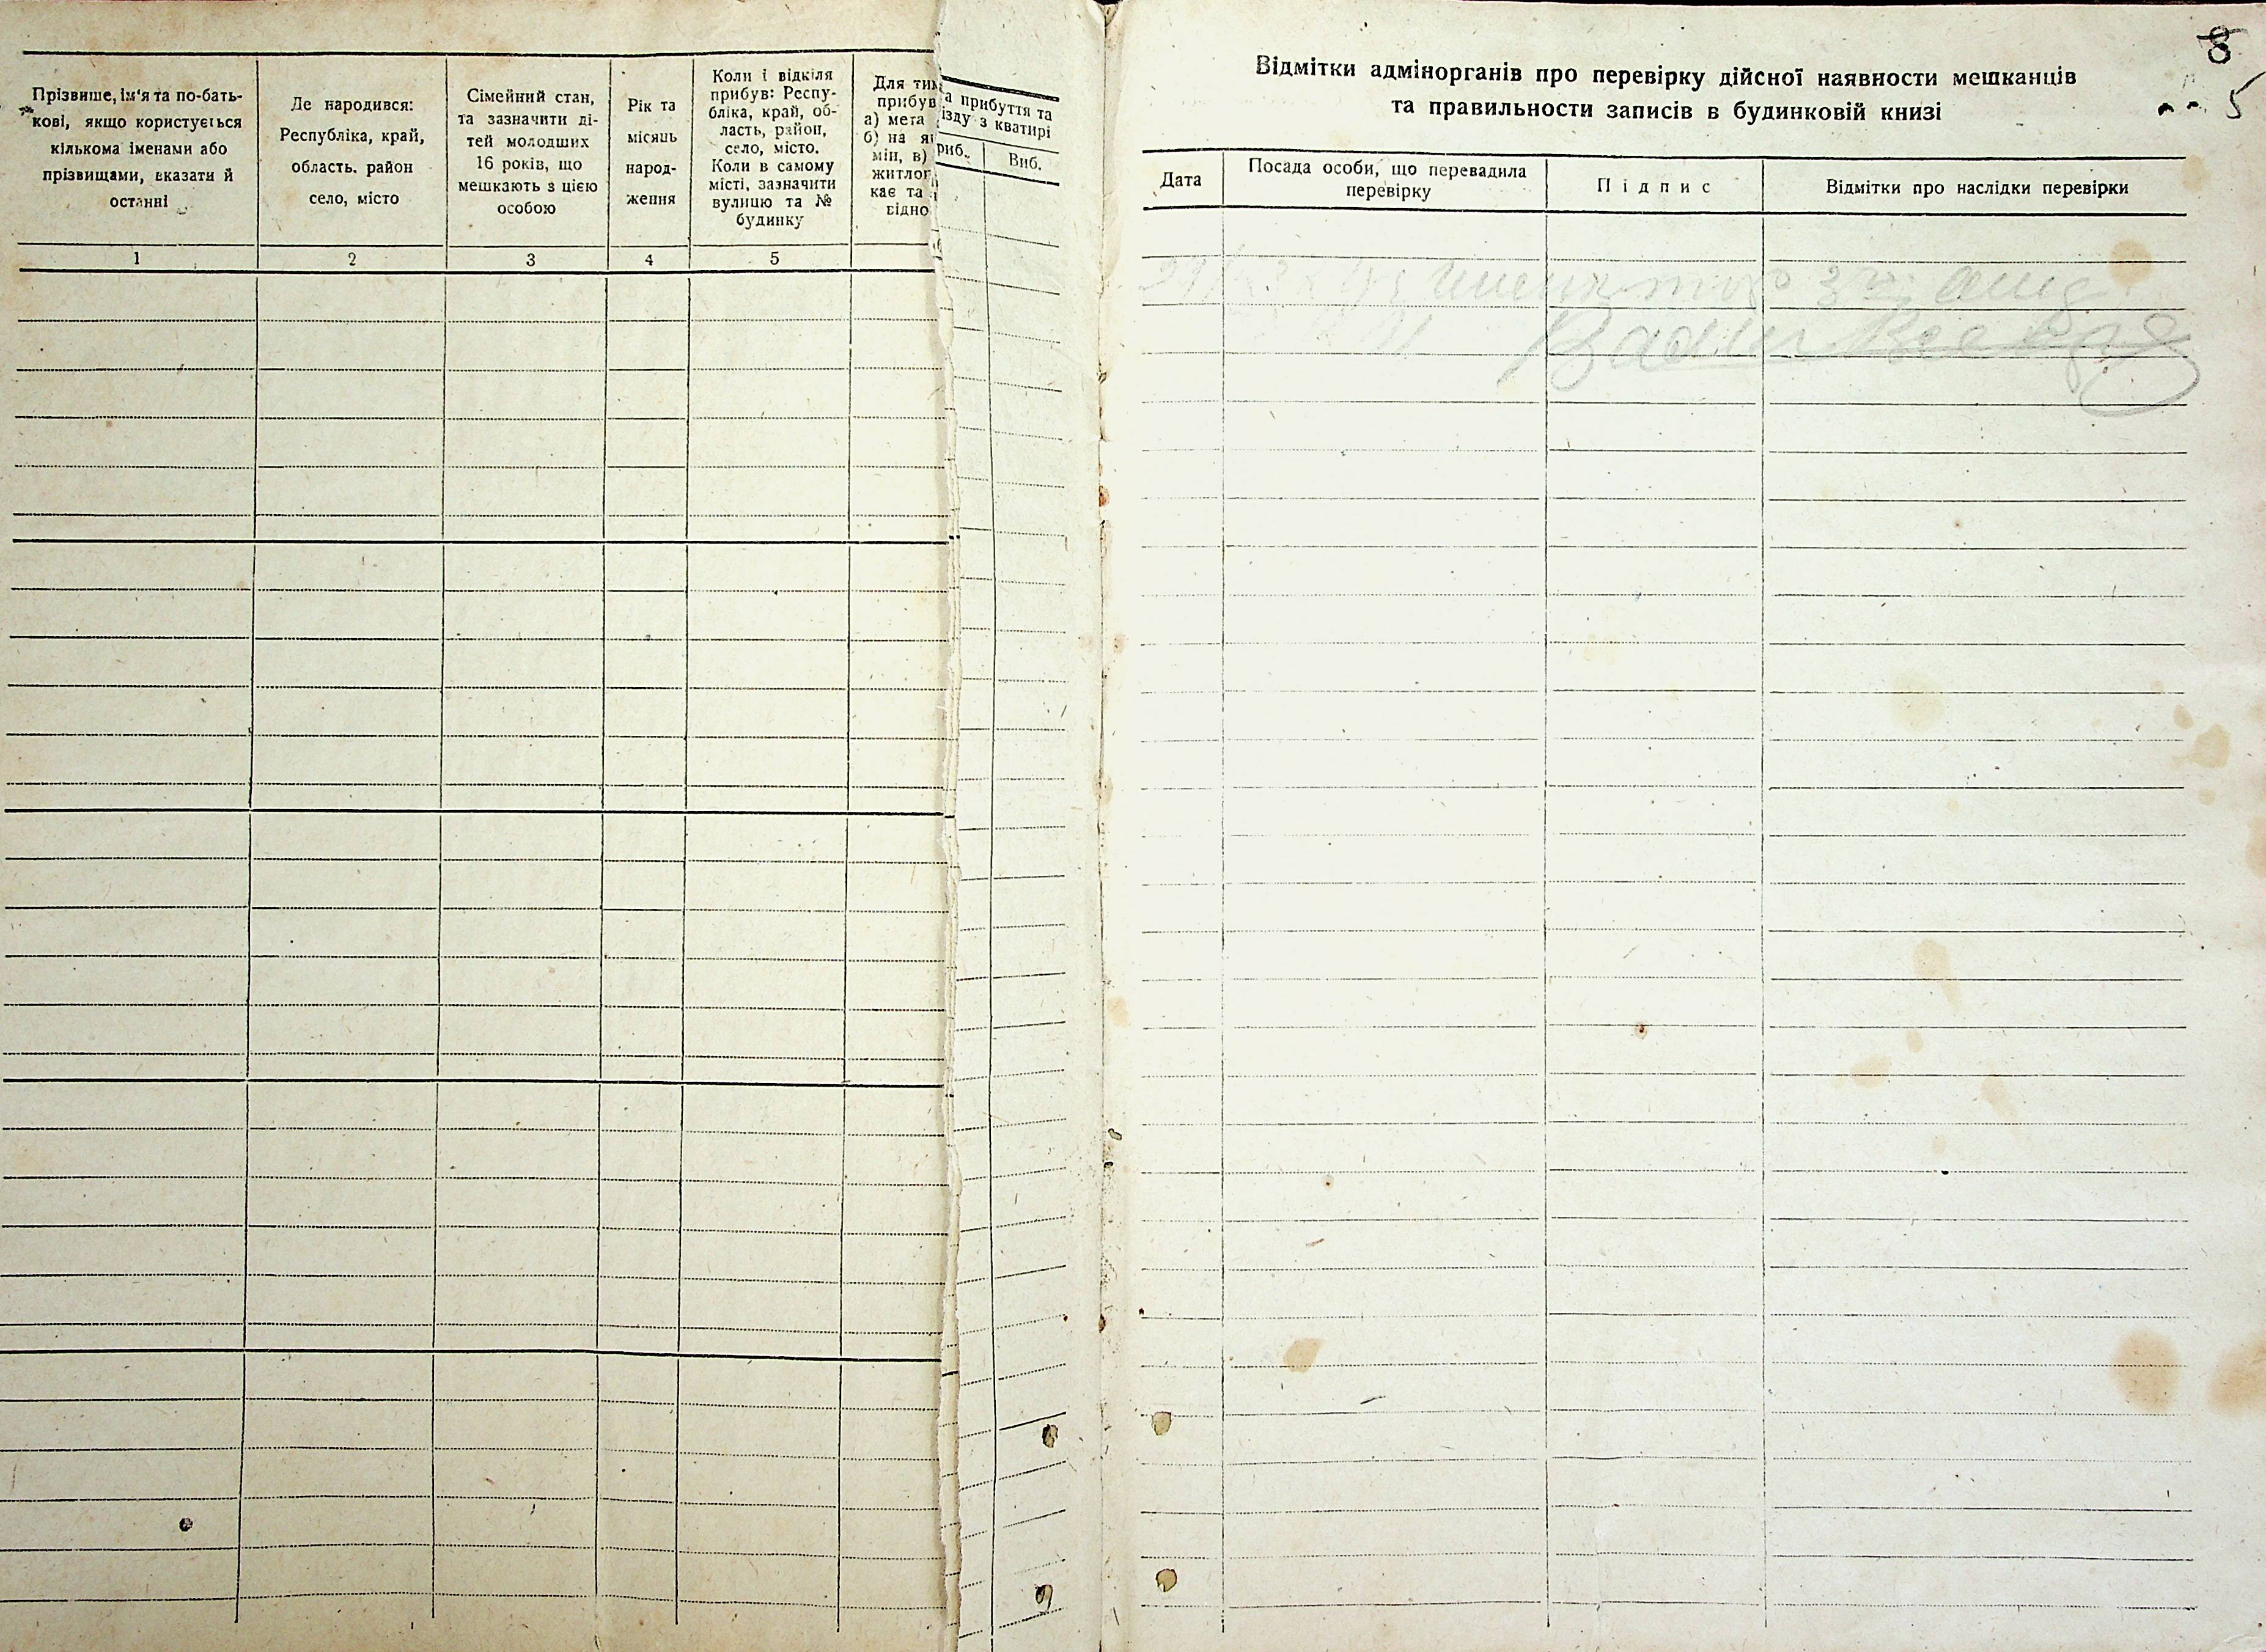 Прізвише, ім'я та по-бать-
кові, якщо користується
кількома іменами або
прізвищами, вказати й
останні
Де народився:
Республіка, край,
область. район
село, місто
Сімейний стан,
та зазначити ді-
тей молодших
16 років, що
мешкають з цією
особою
Рік та
місяць
народ-
ження
Коли і відкіля
прибув: Респу-
бліка, край, об-
ласть, район,
село, місто.
Коли в самому
місті, зазначити
вулицю та №
будинку
Для тим
прибув
а) мета
б) на як
мін, в)
житлог
кає та
відно
1
2
3
4
5
а прибуття та
їзду з кватирі
риб.
Виб.
8
5
Відмітки адмінорганів про перевірку дійсної наявности мешканців
та правильности записів в будинковій книзі
Дата
Посада особи, що перевадила
перевірку
Підпис
Відмітки про наслідки перевірки